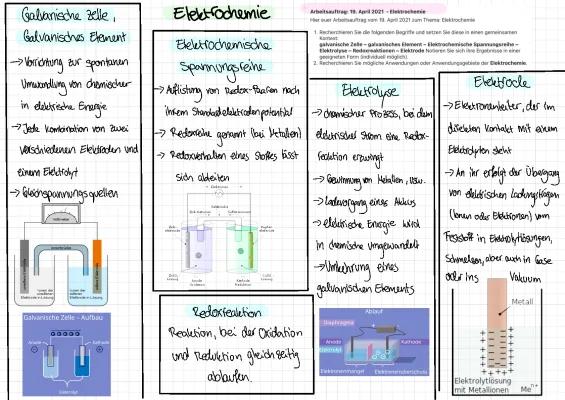 Galvanische Zelle,
Galvanisches Element
→ Vorrichtung zur spontanen
Umwandlung von chemischer
in elektrische Energie
→ Jede Kombination von zwei
verschiedenen Elektroden und
einem Elektrolyt
→ Gleichspannungsquellen
Voltmeter
Salzbrücke
Ionen der
unedleren
Elektrode in Lösung
Ionen der
edleren
Elektrode in Lösung
Galvanische Zelle - Aufbau
Anode
Kathode
Elektrolyt
Elektrochemie
Elektrochemische
Spannungsreihe
→ Auflistung von Redox-Paaren nach
ihrem Standardelektrodenpotential
→ Redoxreihe genannt (bei Metallen)
→ Redoxverhalten eines Stoffes lässt
sich ableiten
Redoxreaktion
Reaktion, bei der Oxidation
und Reduktion gleichzeitig
ablaufen.
Arbeitsauftrag: 19. April 2021 – Elektrochemie
Hier euer Arbeitsauftrag vom 19. April 2021 zum Thema: Elektrochemie
1. Recherchieren Sie die folgenden Begriffe und setzen Sie diese in einen gemeinsamen
Kontext:
galvanische Zelle – galvanisches Element – Elektrochemische Spannungsreihe –
Elektrolyse – Redoxreaktionen – Elektrode Notieren Sie sich Ihre Ergebnisse in einer
geeigneten Form (individuell möglich).
2. Recherchieren Sie mögliche Anwendungen oder Anwendungsgebiete der Elektrochemie.
Elektrolyse
→ chemischer Prozess, bei dem
elektrischer Strom eine Redox-
reaktion erzwingt
→ Gewinnung von Metallen, usw.
→ Ladevorgang eines Akkus
→ elektrische Energie wird
in chemische umgewandelt
→ Umkehrung eines
galvanischen Elements
Ablauf
Diaphragma
Anode
Kathode
Elektrolyt
Elektronenmangel
Elektronenüberschuss
Elektrode
→ Elektronenleiter, der im
direkten Kontakt mit einem
Elektrolyten steht
→ An ihr erfolgt der Übergang
von elektrischen Ladungsträgern
(Ionen oder Elektronen) vom
Feststoff in Elektrolytlösungen,
Schmelzen, aber auch in Gase
oder ins Vakuum
Metall
Elektrolytlösung
mit Metallionen Meⁿ⁺